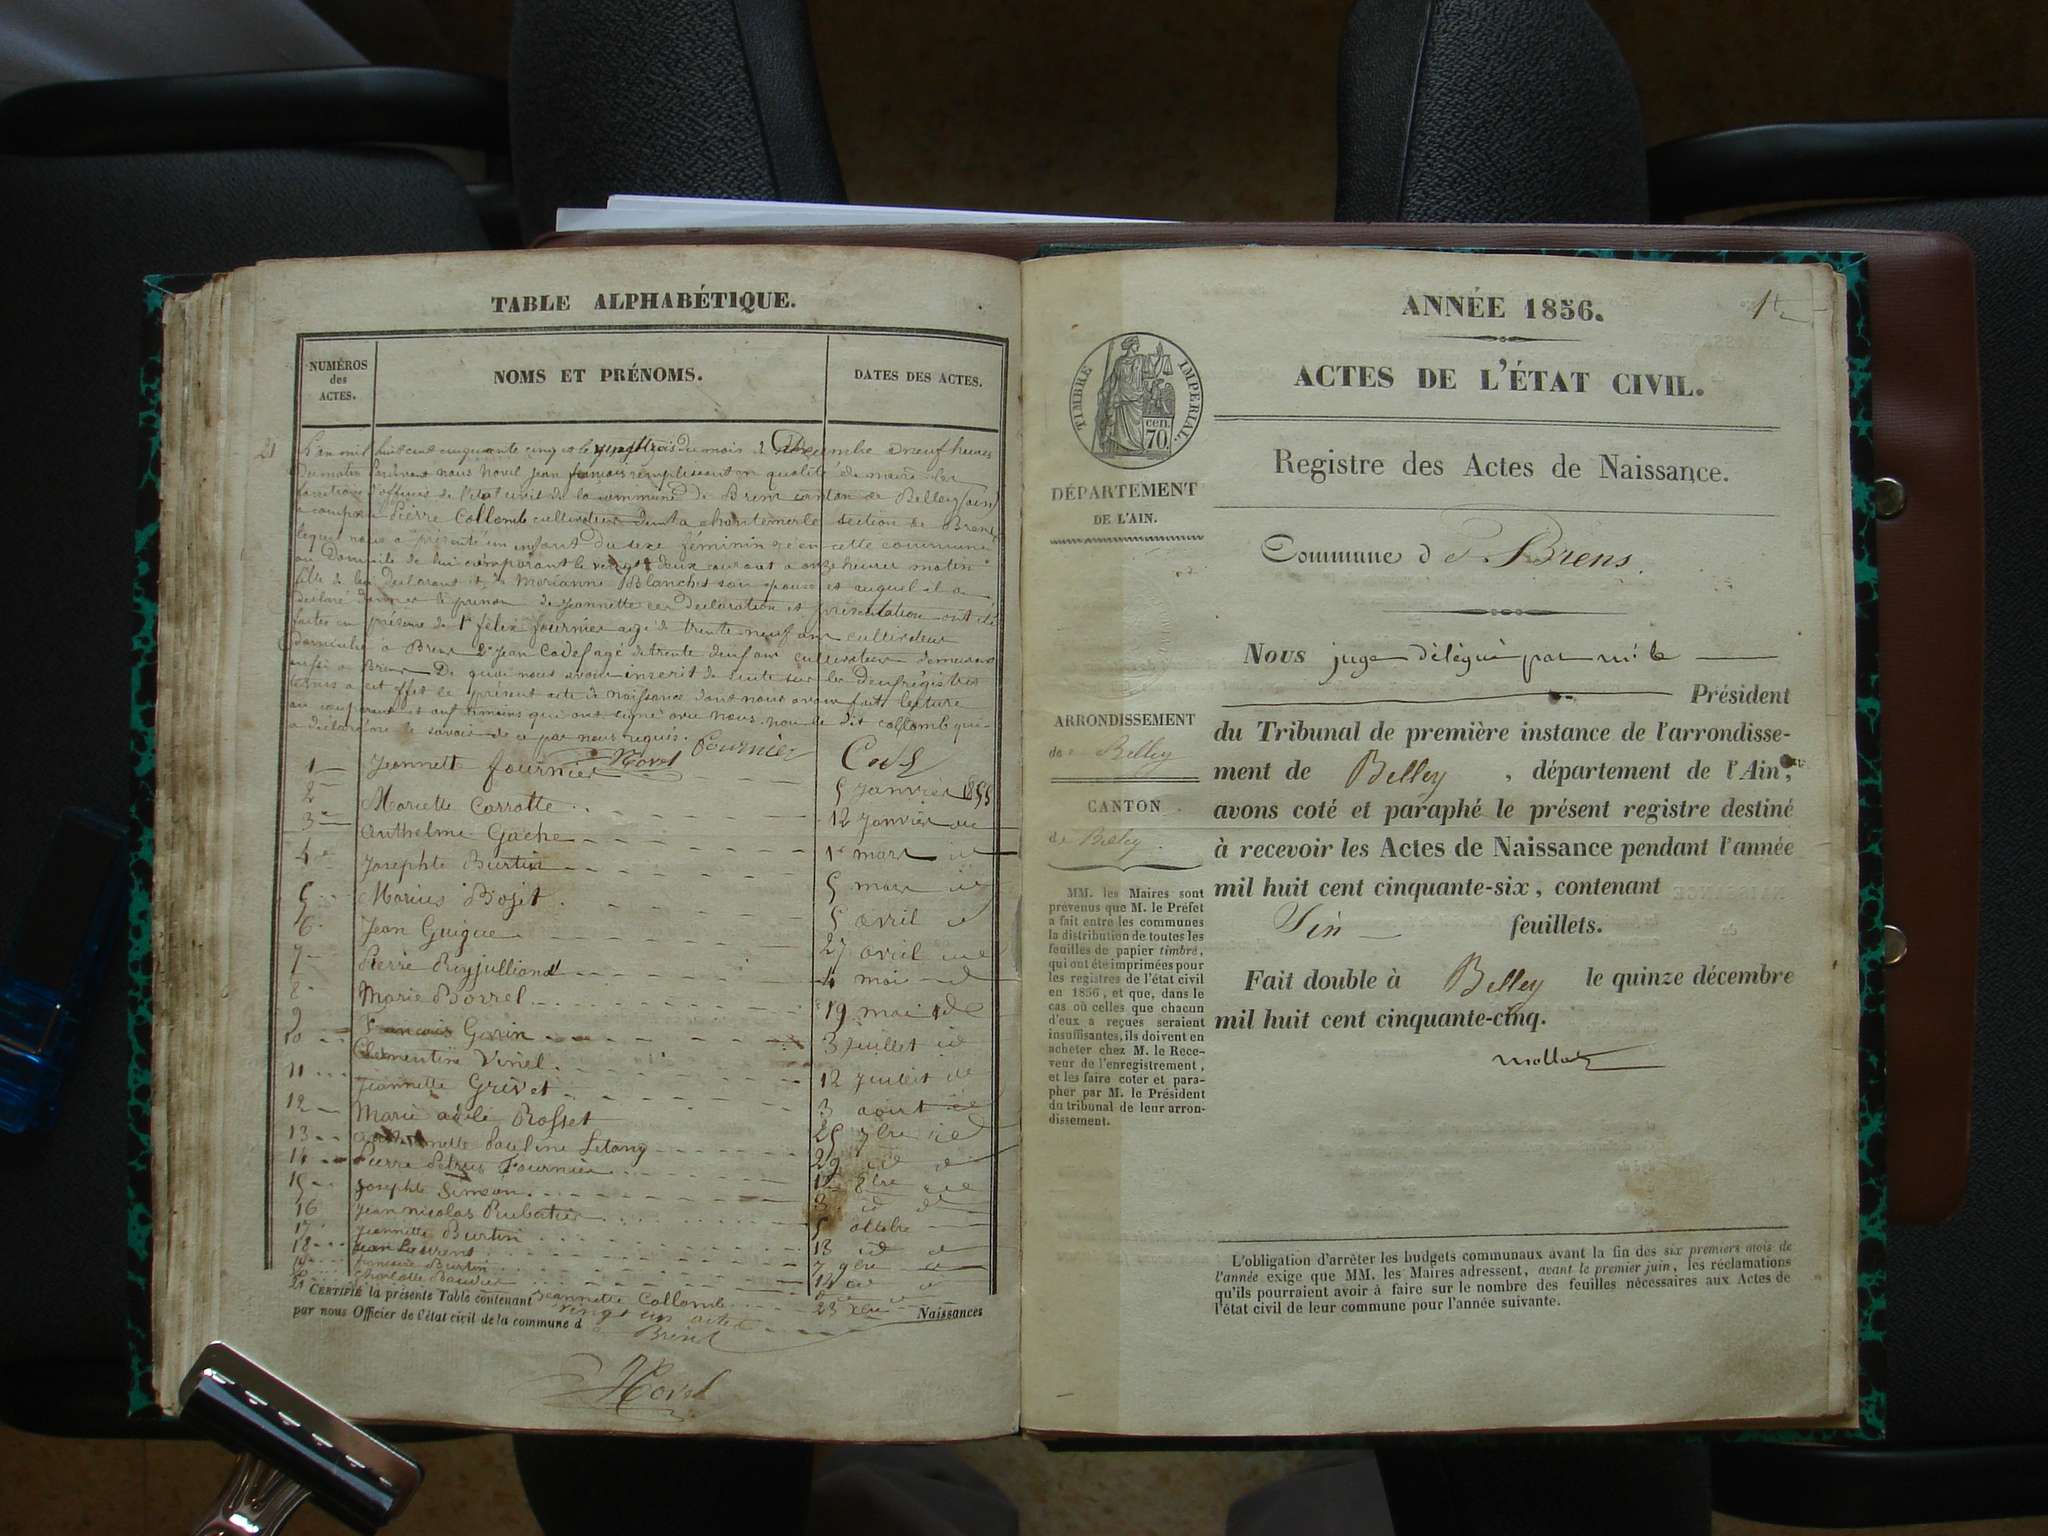 TABLE ALPHABÉTIQUE.
NUMÉROS
des
ACTES.
NOMS ET PRÉNOMS.
DATES DES ACTES.
21 L'an mil huit cent cinquante cinq et le vingt trois du mois de Décembre à neuf heures
du matin pardevant nous Hovel Jean françois remplissant en qualité de maire les
fonctions d'officier de l'état civil de la commune de Brens canton de Belley (ain)
a comparu Pierre Collomb cultivateur chantemerle section de Brens
lequel nous a présenté un enfant du sexe féminin né en cette commune
au domicile de lui comparant le vingt deux courant à onze heures matin
fille de lui déclarant et de Marianne Blanchet son épouse et auquel il a
déclaré donner le prénom de jeannette ces déclaration et présentation ont été
faites en présence de 1° félix fournier agé de trente neuf ans cultivateur
domicilié à Brens 2° jean Codef agé de trente ans cultivateur demeurant
aussi à Brens De quoi nous avons inscrit de suite sur les deux régistres
tenus a cet effet le présent acte de naissance dont nous avons fait lecture
au comparant et aux témoins qui ont signé avec nous. non le dit collomb qui
a déclaré ne le savoir de ce par nous requis.
Hovel Fournier
1 Jeannette fournier 5 janvier 1855
2 Mariette Carrotte 12 janvier id
3 Anthelme Gache 1er mars id
4 Josephte Burtin 5 mars id
5 Marius 5 avril id
6 Jean Guigue 27 avril id
7 Pierre Reyjulliand 4 mai id
8 Marie Borrel 19 mai id
9 Francois Govin 3 juillet id
10 Clementine Vinel 12 juillet id
11 Jeannette Grivet 3 août id
12 Marie adèle Rosset 25 7bre id
13 Pauline Letang 29 id id
14 Pierre Petrus Fournier 8bre id
15 Josephte Simeon 3 id id
16 Jean nicolas Rubatier 5 octobre
17 Jeannette Burtin 13 id id
18 Jean Laurent 7 9bre id
19 francoise Burtin 12 id id
20 Charlotte
21 Jeannette Collomb 23 xbre
CERTIFIÉ la présente Table contenant vingt un actes Naissances
par nous Officier de l'état civil de la commune d Brens
Hovel
ANNÉE 1856.
ACTES DE L'ÉTAT CIVIL.
TIMBRE IMPÉRIAL.
cen.
70
Registre des Actes de Naissance.
DÉPARTEMENT
DE L'AIN.
Commune de Brens.
Nous juge délégué par mr le
Président
du Tribunal de première instance de l'arrondisse-
ment de Belley, département de l'Ain,
avons coté et paraphé le présent registre destiné
à recevoir les Actes de Naissance pendant l'année
mil huit cent cinquante-six, contenant
Six feuillets.
Fait double à Belley le quinze décembre
mil huit cent cinquante-cinq.
ARRONDISSEMENT
de Belley
CANTON
de Belley
MM. les Maires sont
prévenus que M. le Préfet
a fait entre les communes
la distribution de toutes les
feuilles de papier timbré,
qui ont été imprimées pour
les registres de l'état civil
en 1856, et que, dans le
cas où celles que chacun
d'eux a reçues seraient
insuffisantes, ils doivent en
acheter chez M. le Rece-
veur de l'enregistrement,
et les faire coter et para-
pher par M. le Président
du tribunal de leur arron-
dissement.
L'obligation d'arrêter les budgets communaux avant la fin des six premiers mois de
l'année exige que MM. les Maires adressent, avant le premier juin, les réclamations
qu'ils pourraient avoir à faire sur le nombre des feuilles nécessaires aux Actes de
l'état civil de leur commune pour l'année suivante.